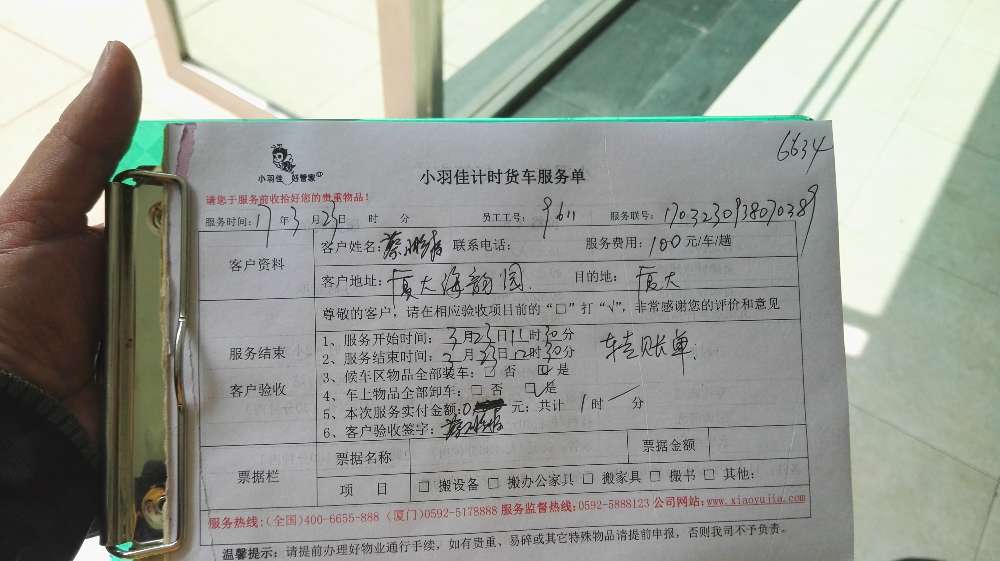 6634
小羽佳 好管家
小羽佳计时货车服务单
请您于服务前收拾好您的贵重物品！
服务时间：17年3月23日 时 分 员工工号：9611 服务联号：1703230938070389
客户资料 客户姓名： 联系电话： 服务费用：100元/车/趟
客户地址：厦大海韵园 目的地：厦大
尊敬的客户，请在相应验收项目前的“□”打“√”，非常感谢您的评价和意见
服务结束 客户验收
1、服务开始时间：3月23日11时30分
2、服务结束时间：3月23日12时30分
转账单
3、候车区物品全部装车：□ 否 ☑ 是
4、车上物品全部卸车：□ 否 ☑ 是
5、本次服务实付金额：0 元；共计 1时 分
6、客户验收签字：
票据栏 票据名称 票据金额
项 目 □ 搬设备 □ 搬办公家具 □ 搬家具 □ 搬书 □ 其他：
服务热线：（全国）400-6655-888 （厦门）0592-5178888 服务监督热线：0592-5888123 公司网站：www.xiaoyujia.com
温馨提示：请提前办理好物业通行手续，如有贵重、易碎或其它特殊物品请提前申报，否则我司不予负责。